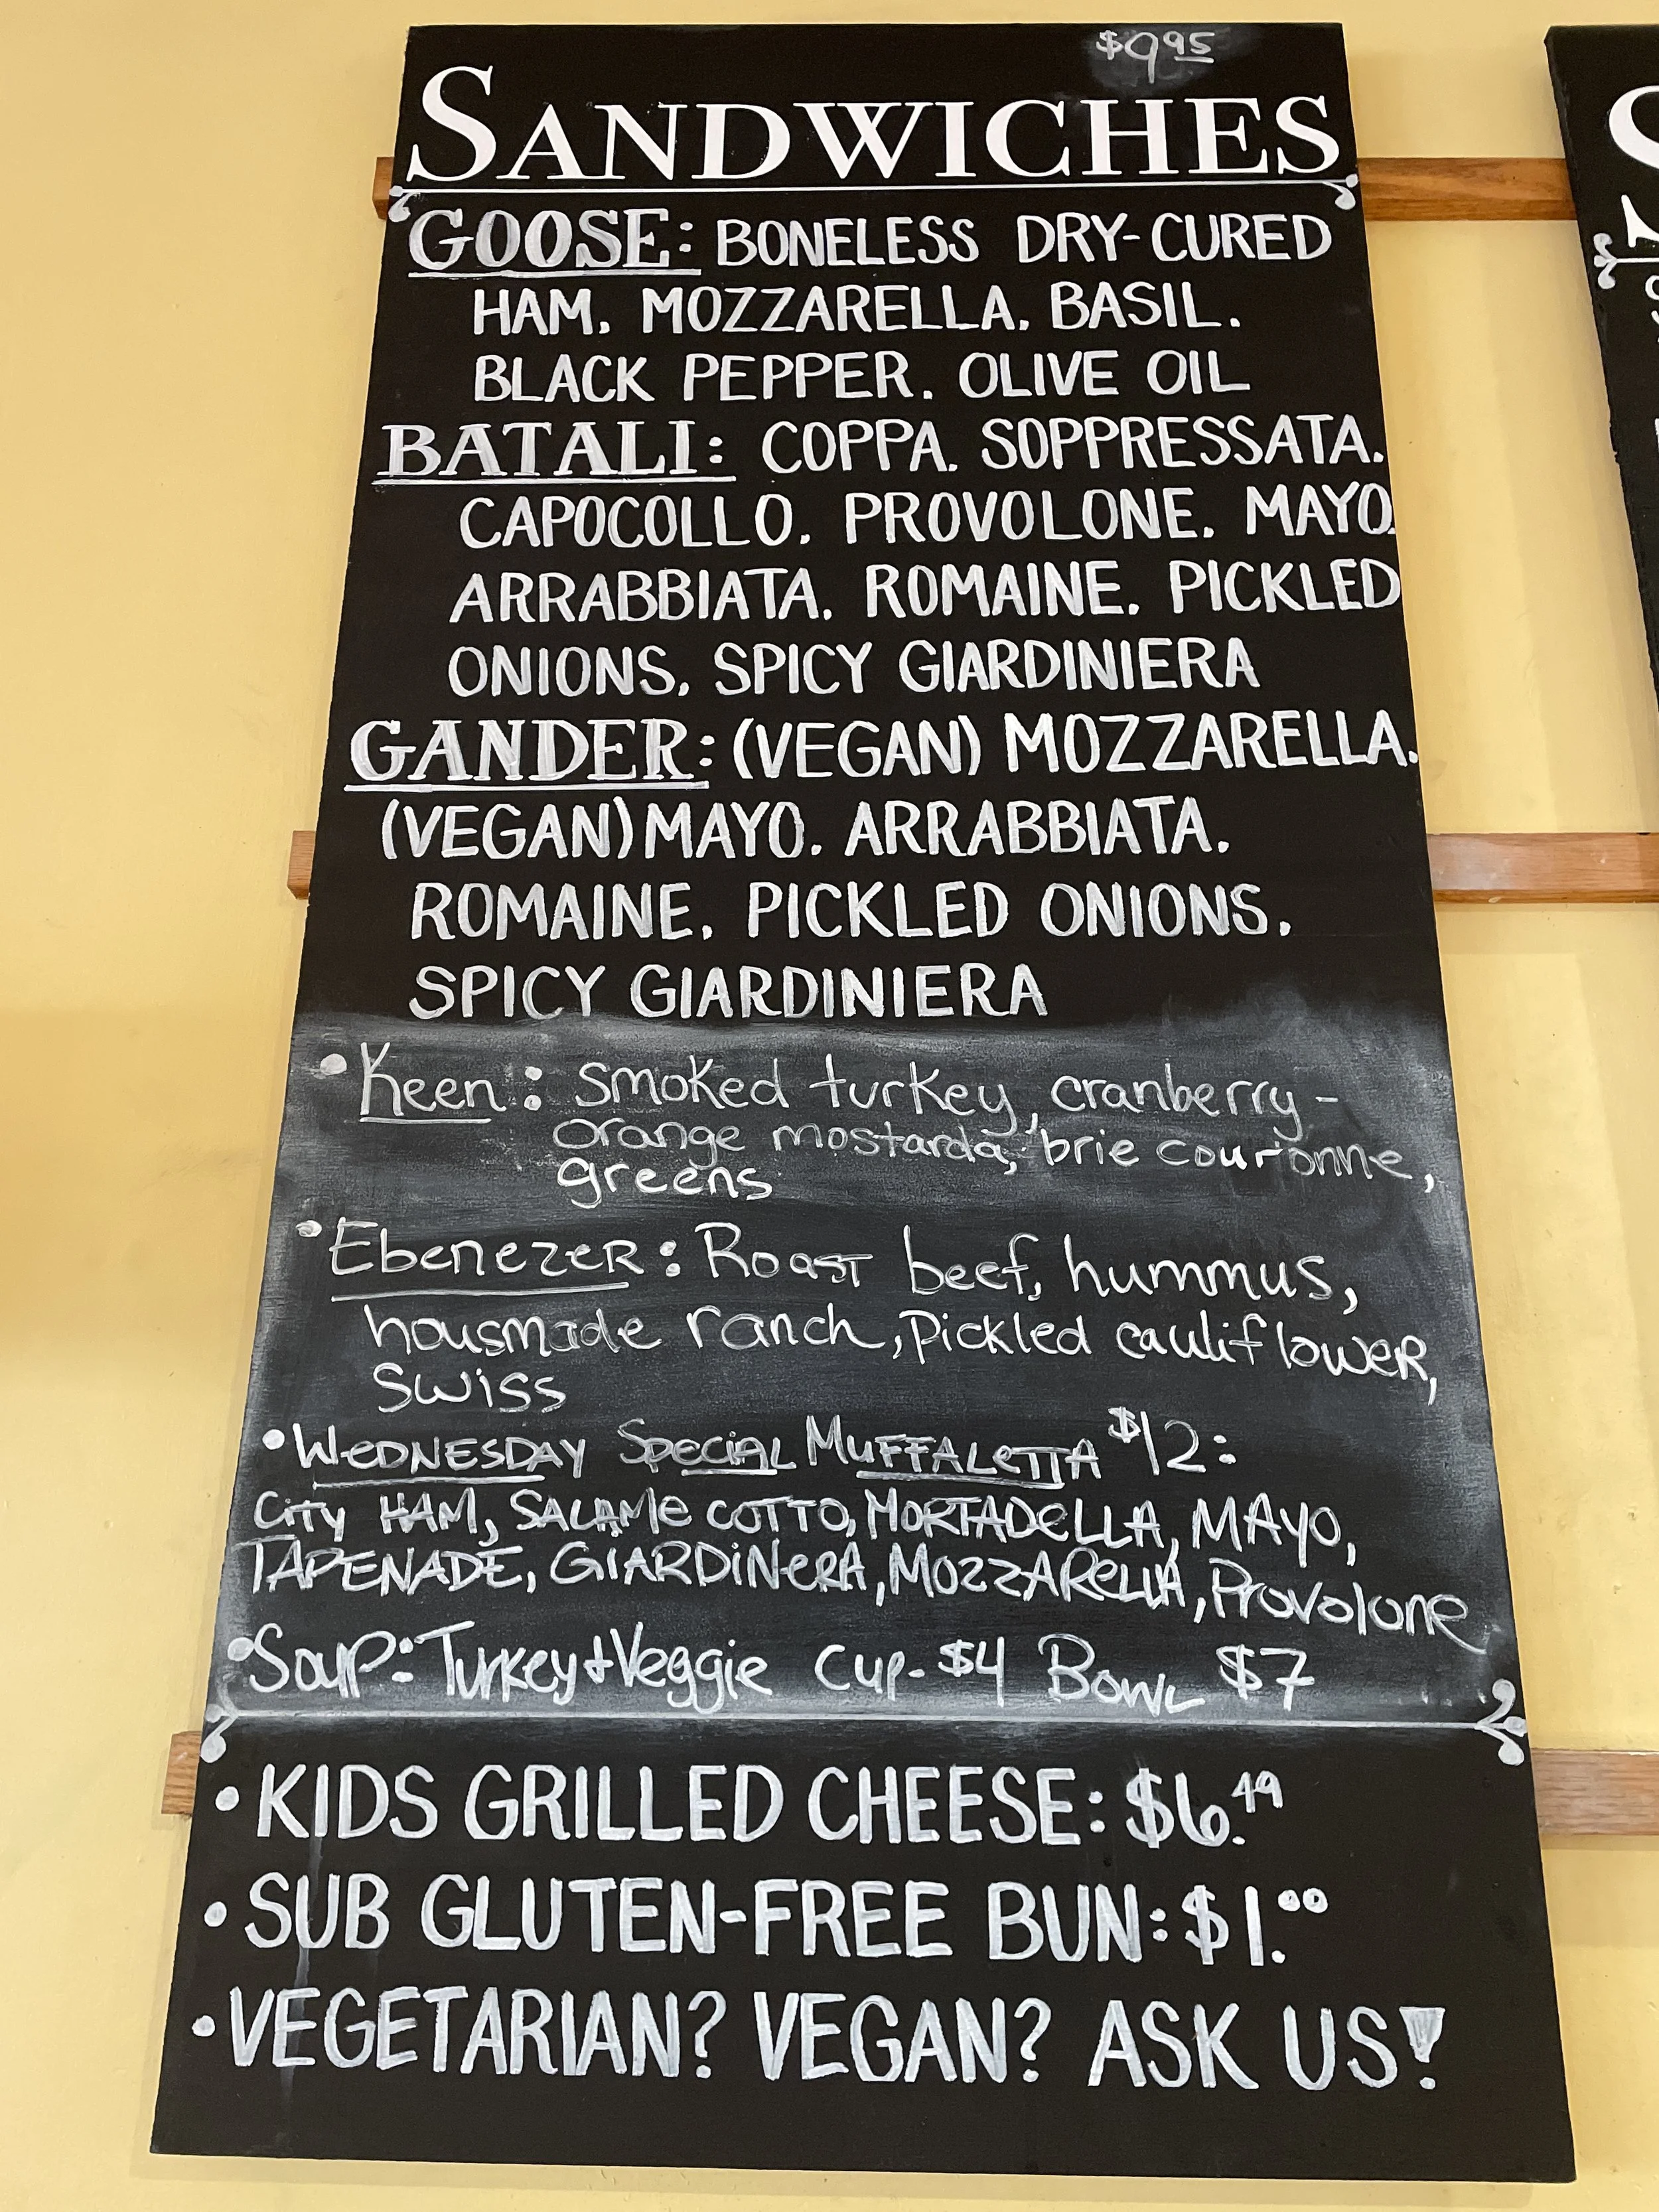 $9.95
SANDWICHES
GOOSE: BONELESS DRY-CURED
HAM. MOZZARELLA. BASIL.
BLACK PEPPER. OLIVE OIL
BATALI: COPPA. SOPPRESSATA.
CAPOCOLLO. PROVOLONE. MAYO.
ARRABBIATA. ROMAINE. PICKLED
ONIONS. SPICY GIARDINIERA
GANDER: (VEGAN) MOZZARELLA.
(VEGAN) MAYO. ARRABBIATA.
ROMAINE. PICKLED ONIONS.
SPICY GIARDINIERA
•Keen: Smoked turkey, cranberry-
orange mostarda, brie couronne,
greens
•Ebenezer: Roast beef, hummus,
housmade ranch, Pickled cauliflower,
Swiss
•WEDNESDAY Special MUFFALETTA $12:
City HAM, SALAMe COTTO, MORTADeLLA, MAYO,
TAPENADE, GIARDiNeRA, MOZZARELLA, Provolone
•Soup: Turkey+Veggie Cup- $4 Bowl $7
•KIDS GRILLED CHEESE: $6.49
•SUB GLUTEN-FREE BUN: $1.00
•VEGETARIAN? VEGAN? ASK US!